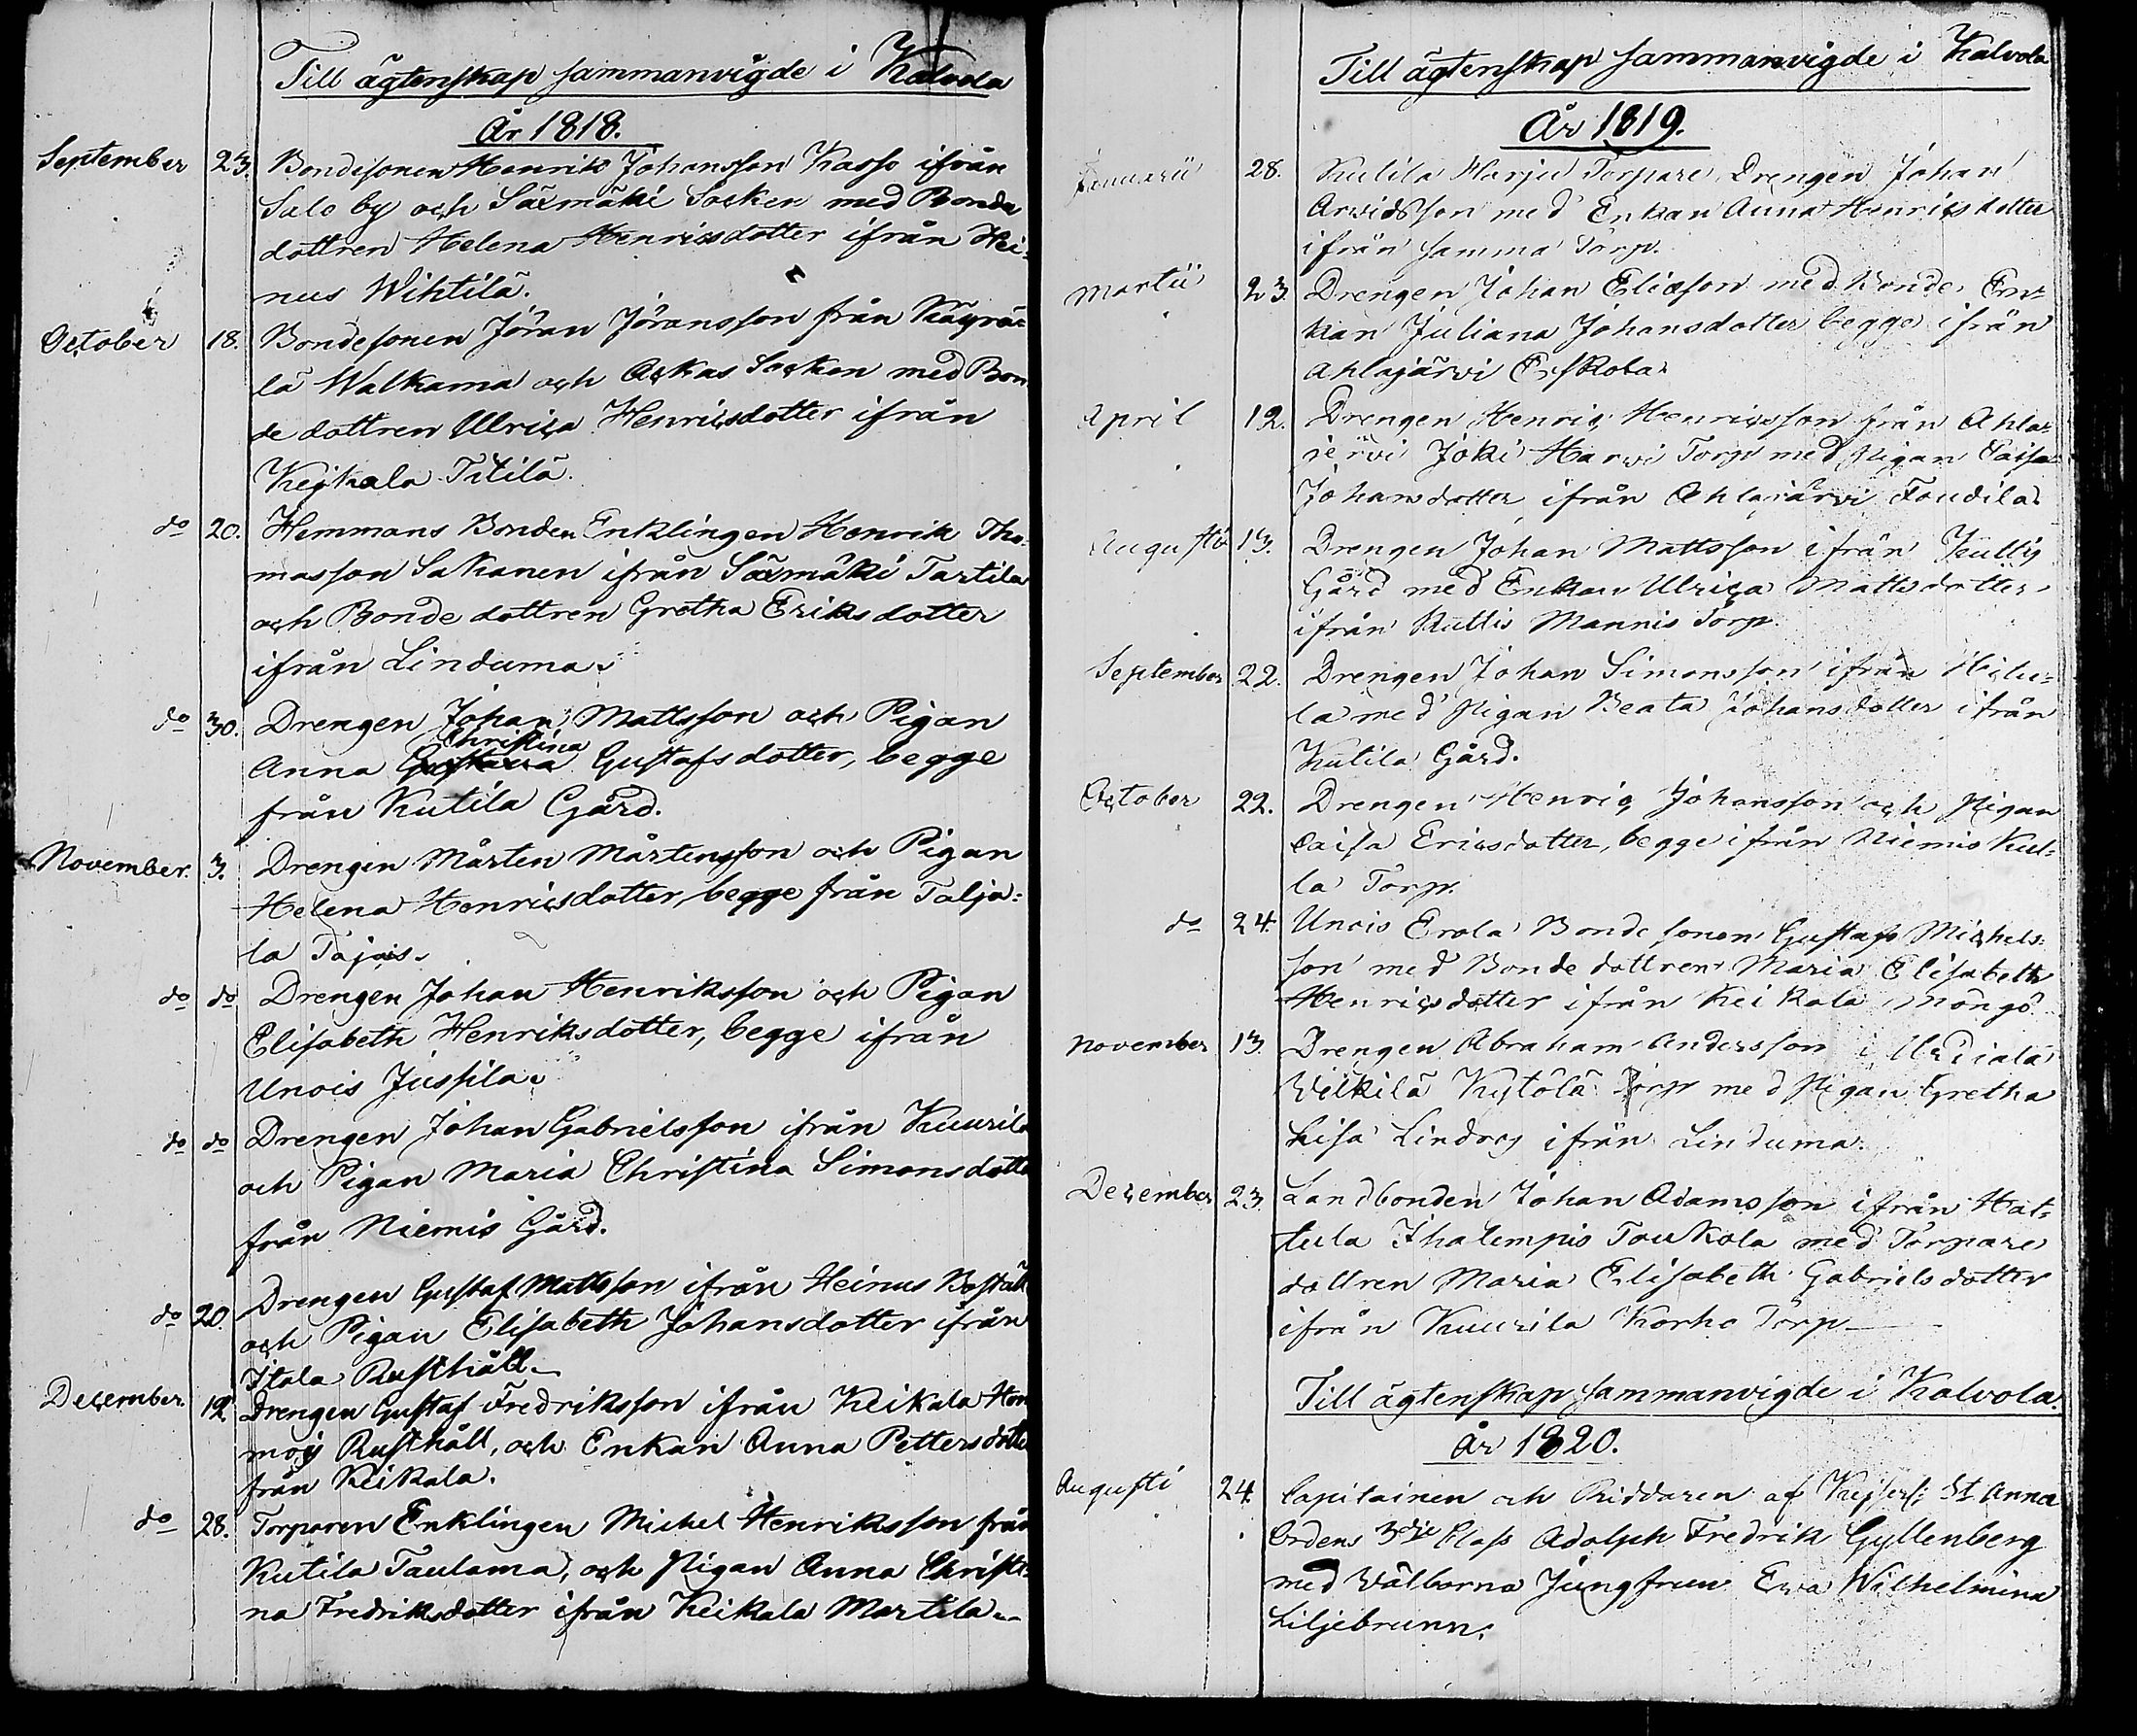 Till ägtenskap sammanvigde i Kalvola
År 1818.
September 23. Bondesonen Henrik Johansson Kasso ifrån
Salo by och Säxmäki Socken med Bonde
dottren Helena Henricsdotter ifrån Hei-
nus Wihtilä.
October 18. Bondesonen Jöran Jöransson från Käyrä-
lä Walkama och Ackas Socken med Bon
de dottren Ulrica Henricsdotter ifrån
Keikala Titilä.
do 20. Hemmans Bonden Enklingen Henrik Tho-
masson Sakanen ifrån Säxmäki Tartila
och Bonde dottren Gretha Eriksdotter
ifrån Linduma.
do 30. Drengen Johan Mattsson och Pigan
Christina
Anna Gustava Gustafsdotter, begge
från Kutila Gård.
November. 3. Drengen Mårten Mårtensson och Pigan
Helena Henricsdotter, begge från Talja-
la Tajais.
do do Drengen Johan Henriksson och Pigan
Elisabeth Henriksdotter, begge ifrån
Unois Jussila.
do do Drengen Johan Gabrielsson ifrån Kuurila
och Pigan Maria Christina Simonsdotte
från Niemis Gård.
do 20. Drengen Gustaf Mattsson ifrån Heinus Boställ
och Pigan Elisabeth Johansdotter ifrån
Itala Rusthåll.
December. 12. Drengen Gustaf Fredriksson ifrån Keikala Hom
moij Rusthåll, och Enkan Anna Pettersdotte
från Keikala.
do 28. Torparen Enklingen Michel Henriksson från
Kutila Taulama, och Pigan Anna Christi-
na Fredriksdotter ifrån Keikala Martila.
Till ägtenskap sammanvigde i Kalvola
År 1819.
Januarii 28. Kutila Harju Torpare Drengen Johan
Arvidsson med Enkan Anna Henricsdotter
ifrån samma Torp.
Martii 23. Drengen Johan Eliasson med Bonde En-
kan Juliana Johansdotter begge ifrån
Ahlajärvi Erskola.
April 12. Drengen Henric Henricsson från Ahla-
järvi Joki Harvi Torp med Pigan Caisa
Johansdotter ifrån Ahlajärvi Foudila.
Augusti 13. Drengen Johan Mattsson ifrån Kutlis
Gård med Enkan Ulrica Mattsdotter
ifrån Kutlis Mannis Torp.
September 22. Drengen Johan Simonsson ifrån
la med Pigan Beata Johansdotter ifrån
Kutila Gård.
October 22. Drengen Henric Johansson och Pigan
Caisa Ericsdotter, begge ifrån Niemis Kul-
la Torp.
do 24. Unois Erola Bonde sonen Gustaf Michels-
son med Bonde dottren Maria Elisabeth
Henricsdotter ifrån Keikala Möngö.
November 13. Drengen Abraham Andersson i Urdiala
Wilkilä Kytölä Torp med Pigan Gretha
Lisa Lindroj ifrån Linduma.
December 23. Landbonden Johan Adamsson ifrån Hat-
tula Ihalempis Toukola med Torpare
dottren Maria Elisabeth Gabrielsdotter
ifrån Kuurila Korho Torp
Till ägtenskap sammanvigde i Kalvola.
År 1820.
Augusti 24. Capitainen och Riddaren af Kejserl: St Anna
Ordens 3dje Class Adolph Fredrik Gyllenberg
med Välborna Jungfrun Eva Wilhelmina
Liljebrunn.